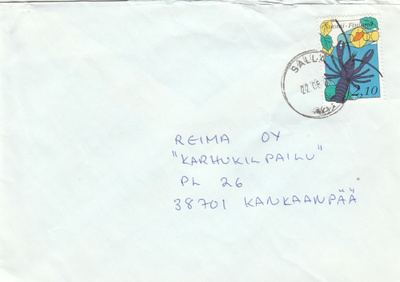 Suomi - Finland
2,10
SALLA
REIMA OY
"KARHUKILPAILU"
PL 26
38701 KANKAANPÄÄ